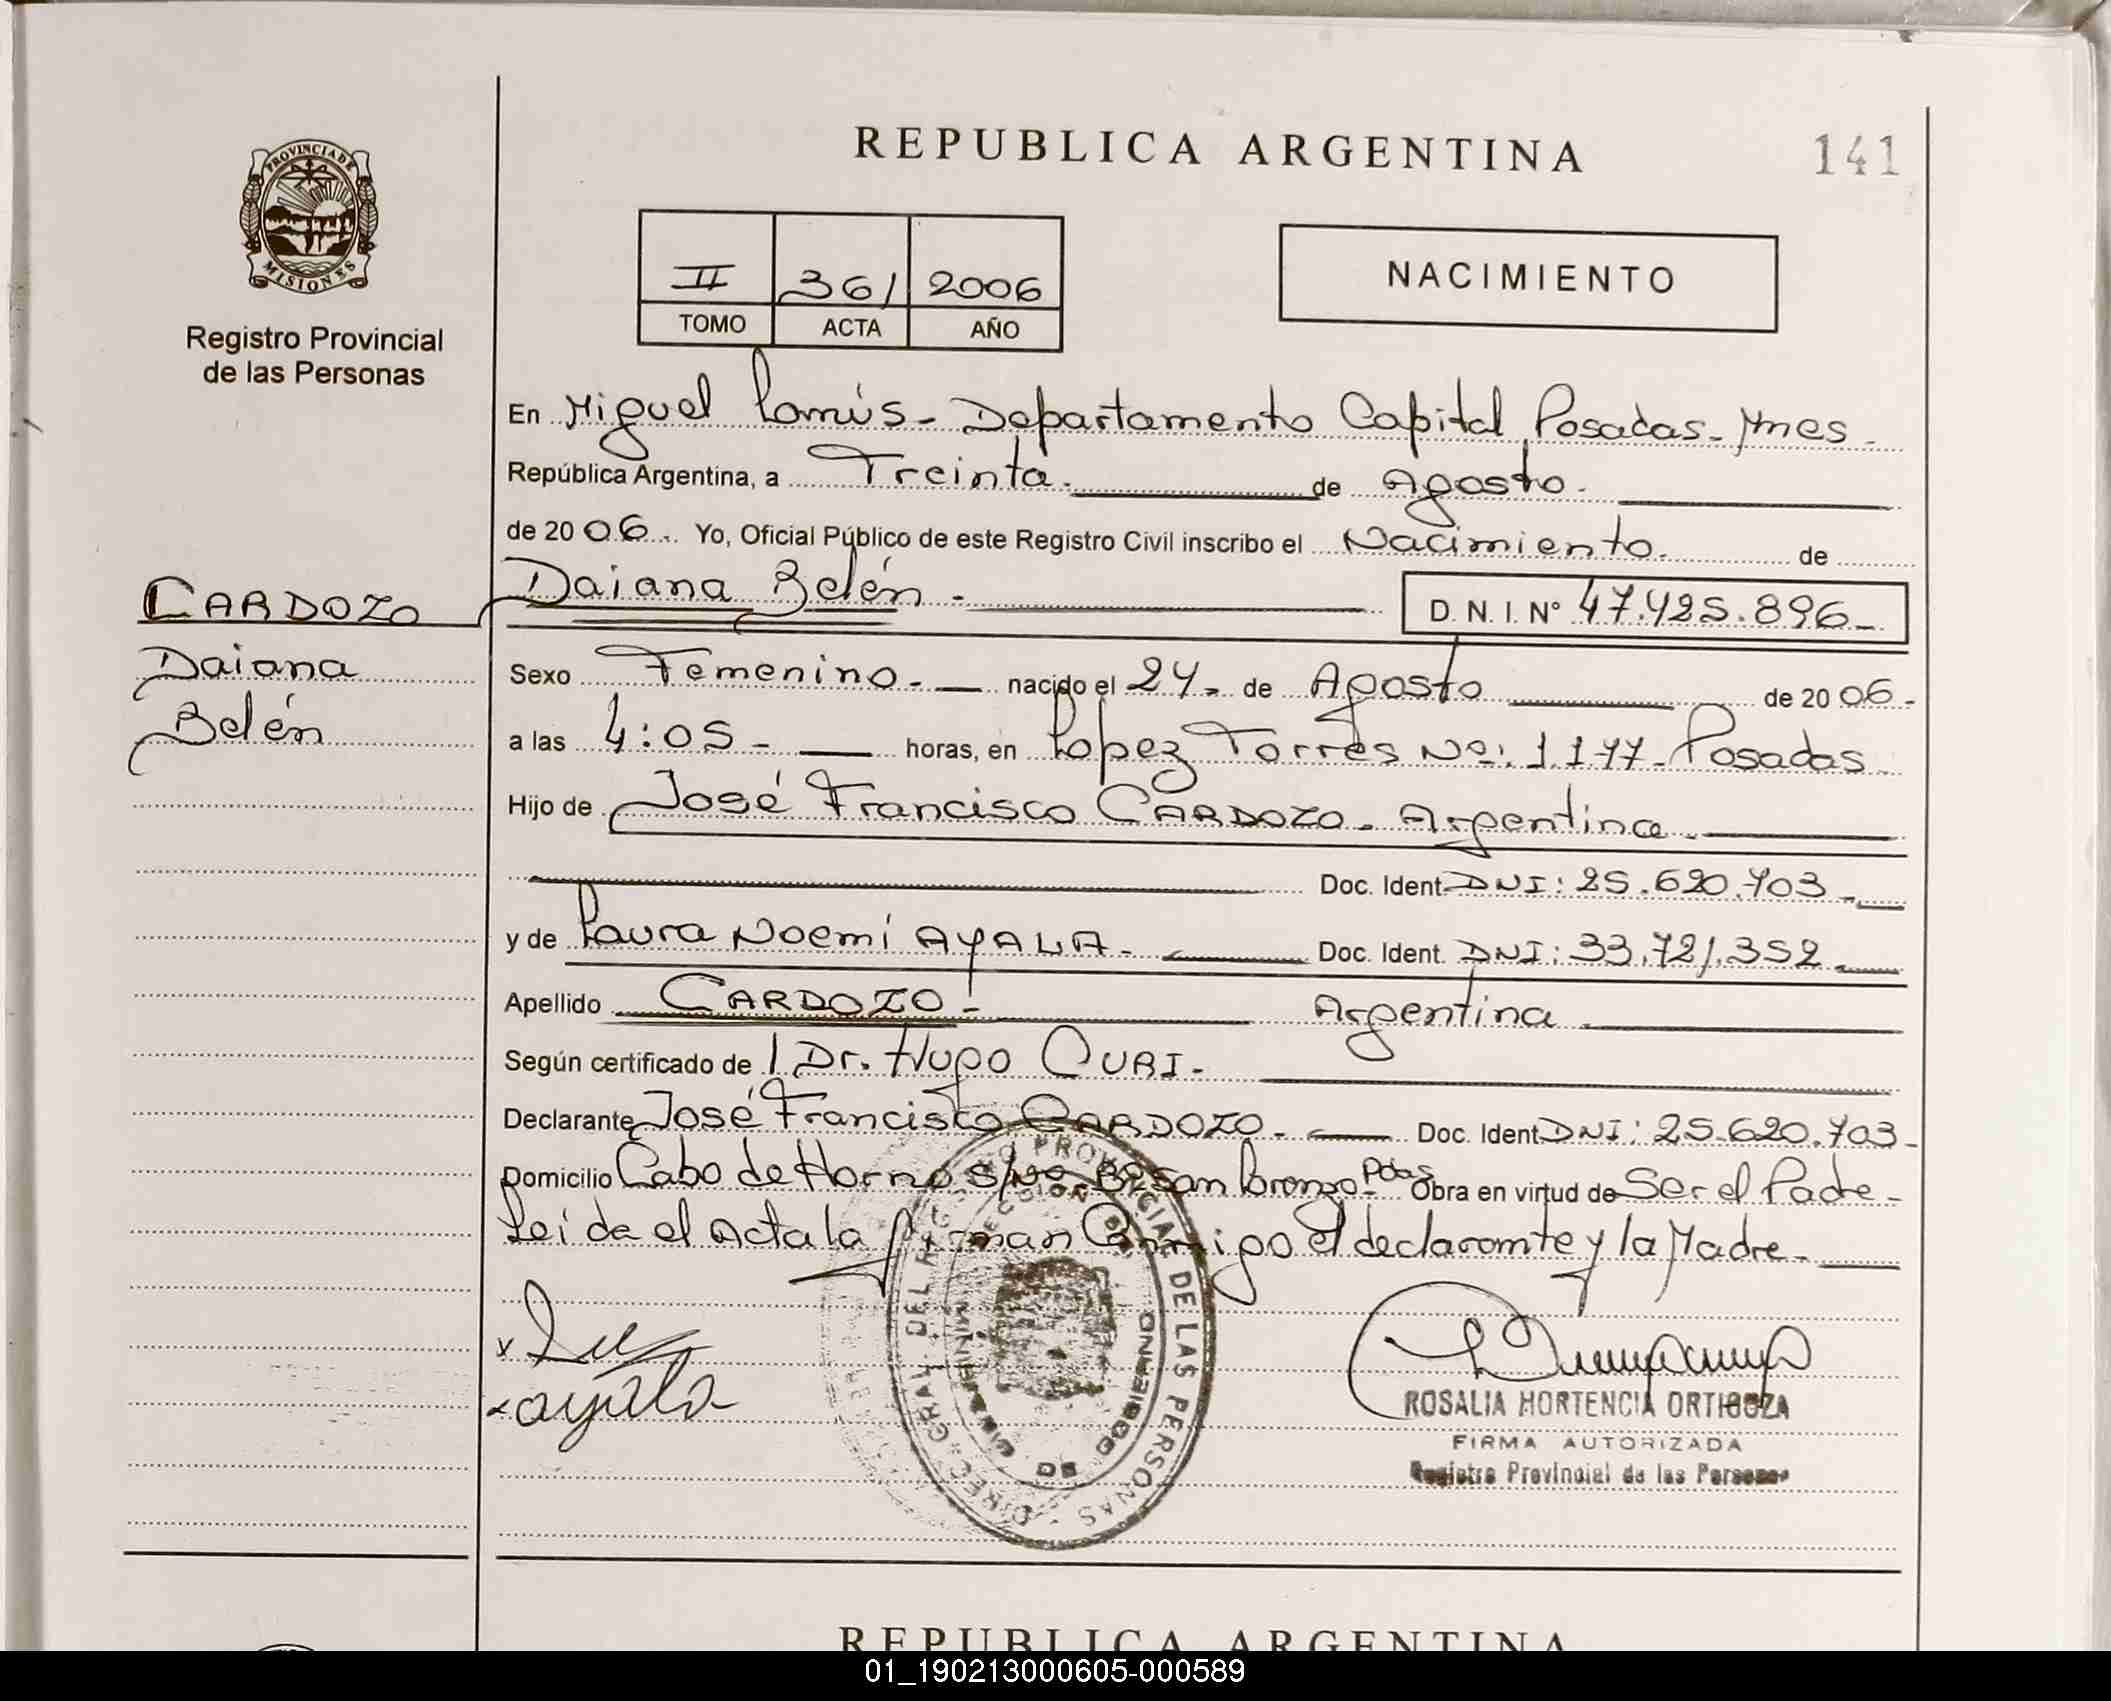 REPUBLICA ARGENTINA
141
PROVINCIA DE
MISIONES
Registro Provincial
de las Personas
II 361 2006
TOMO ACTA AÑO
NACIMIENTO
En Miguel Lanús - Departamento Capital, Posadas - Mnes -
República Argentina, a Treinta. de Agosto.
de 20 06. Yo, Oficial Público de este Registro Civil inscribo el Nacimiento. de
CARDOZO
Daiana
Belén
Daiana Belén -
D. N. I. Nº 47.425.896 -
Sexo Femenino. - nacido el 24. de Agosto de 20 06 -
a las 4:05 - horas, en Lopez Torres Nº: 1.177 - Posadas
Hijo de José Francisco CARDOZO - Argentina -
Doc. Ident. DNI: 25.620.703 -
y de Laura Noemí AYALA - Doc. Ident. DNI: 33.721.352 -
Apellido CARDOZO - Argentina -
Según certificado de / Dr. Hugo CURI -
Declarante José Francisco CARDOZO - Doc. Ident DNI: 25.620.703 -
Domicilio Cabo de Hornos S/Nº Bº San Lorenzo - Pdas Obra en virtud de Ser el Padre -
Leída el Acta la firman Conmigo el declarante y la Madre -
x
x ayala
DIREC. GRAL. DEL REGISTRO PROVINCIAL DE LAS PERSONAS
DE GOBIERNO
ROSALIA HORTENCIA ORTIGOZA
FIRMA AUTORIZADA
Registro Provincial de las Personas
REPUBLICA ARGENTINA
01_190213000605-000589